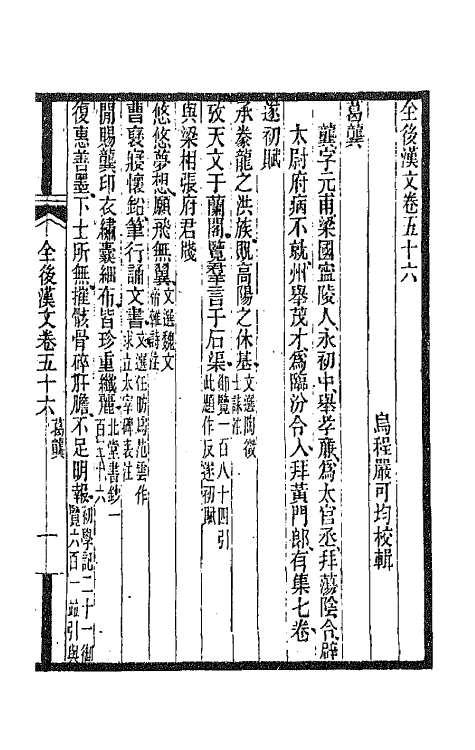 全後漢文卷五十六
烏程嚴可均校輯
葛龔
龔字元甫梁國寍陵人永初中舉孝廉爲太官丞拜蕩陰令辟
太尉府病不就州舉茂才爲臨汾令入拜黃門郎有集七卷
遂初賦
承豢龍之洪族貺高陽之休基文選陶徵士誄注
攷天文于蘭閣覽羣言于石渠御覽一百八十四引此題作反遂初賦
與梁相張府君牋
悠悠夢想願飛無翼文選魏文帝雜詩注
曹襃寢懷鉛筆行誦文書文選任昉爲范雲作求立太宰碑表注
開賜龔印衣繡囊細布皆珍重纖麗北堂書鈔一百三十六
復惠善墨下士所無摧骸骨碎肝膽不足明報初學記二十一御覽六百一竝引與
全後漢文卷五十六
葛龔
一